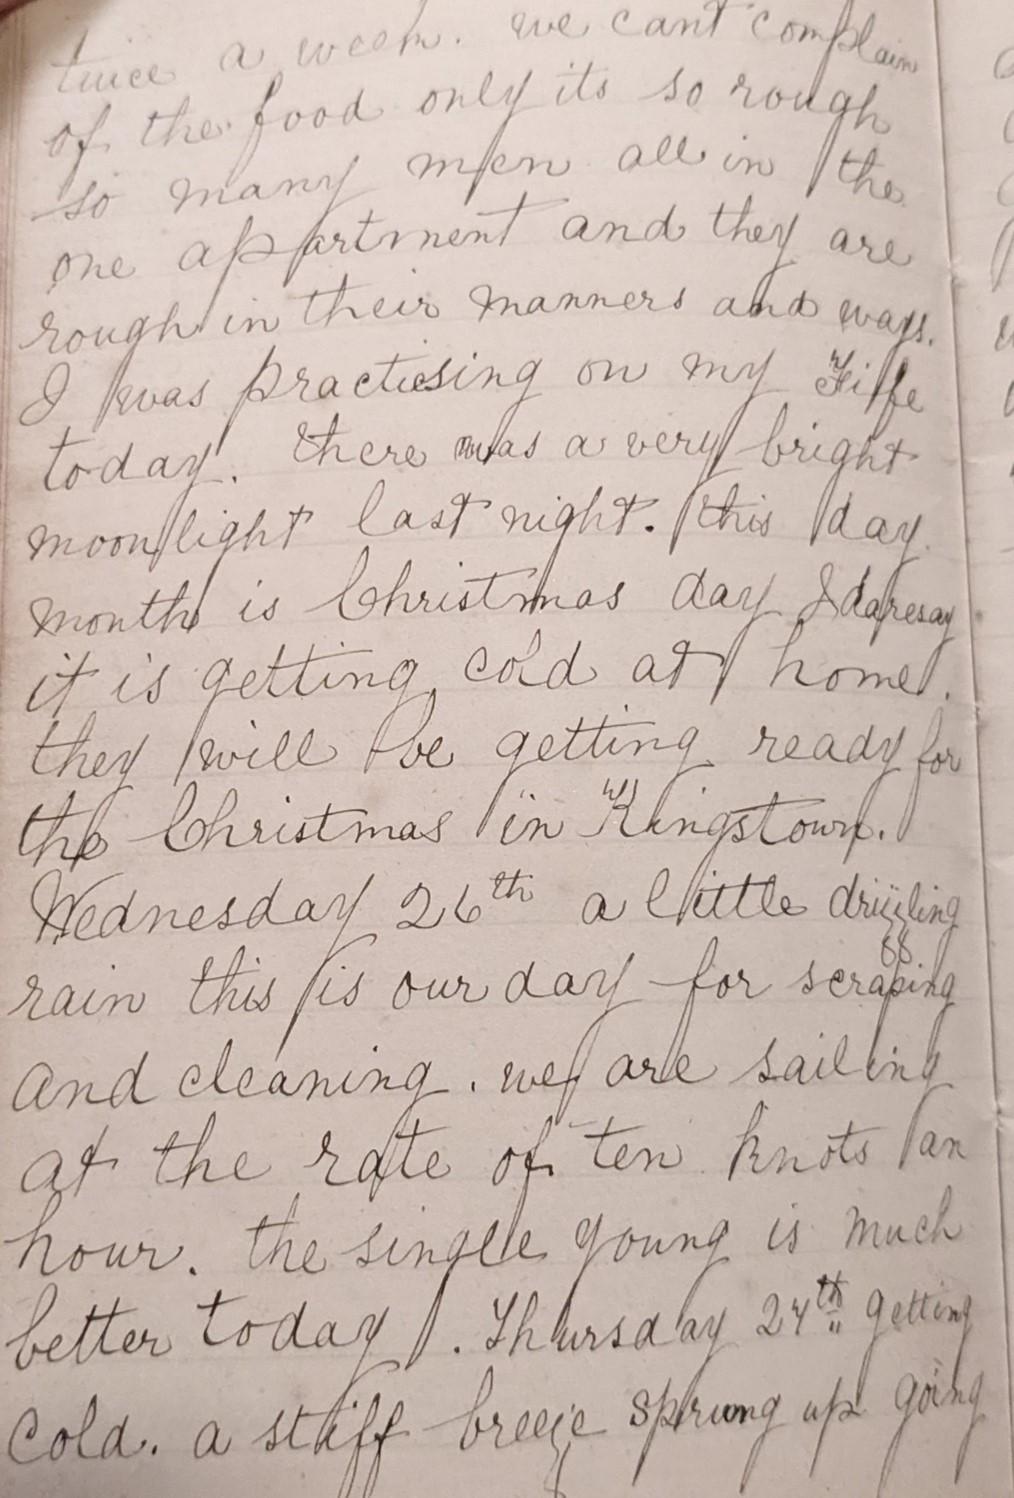 twice a week. we cant complain
of the food only its so rough
so many men all in the
one appartment and they are
rough in their manners and ways.
I was practising on my Fife
today. there was a very bright
moonlight last night. this day
month is Christmas day I daresay
it is getting cold at home.
they will be getting ready for
the Christmas in Kingstown.
Wednesday 26th a little drizzling
rain this is our day for scraping
and cleaning. we are sailing
at the rate of ten knots an
hour. the single young is much
better today. Thursday 27th getting
cold. a stiff breeze sprung up going